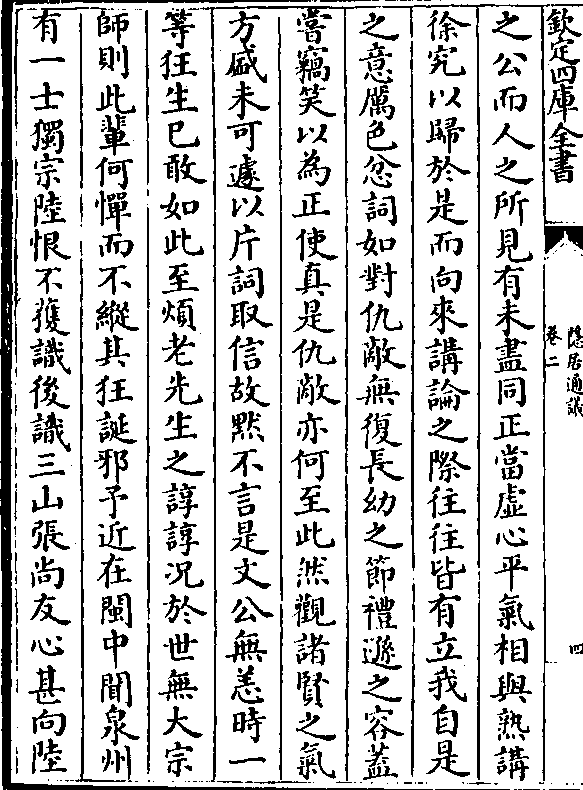 欽定四庫全書
隱居通議
卷二
四
之公而人之所見有未盡同正當虛心平氣相與熟講
徐究以歸於是而向來講論之際往往皆有立我自是
之意厲色忿詞如對仇敵無復長幼之節禮遜之容蓋
嘗竊笑以為正使真是仇敵亦何至此然觀諸賢之氣
方盛未可遽以片詞取信故黙不言是文公無恙時一
等狂生已敢如此至煩老先生之諄諄况於世無大宗
師則此輩何憚而不縱其狂誕邪予近在閩中聞泉州
有一士獨宗陸恨不獲識後識三山張尚友心甚向陸